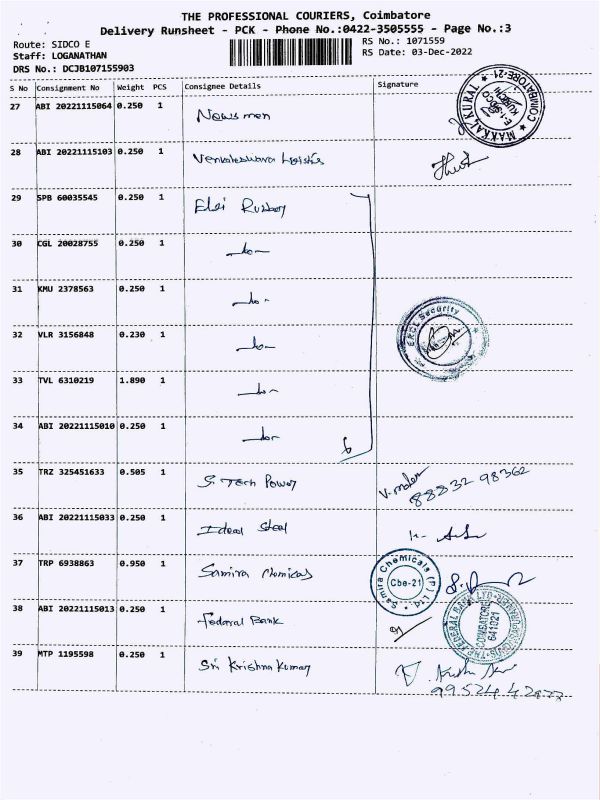 THE PROFESSIONAL COURIERS, Coimbatore
Delivery Runsheet - PCK - Phone No.:0422-3505555 - Page No.:3
Route: SIDCO E RS No.: 1071559
Staff: LOGANATHAN RS Date: 03-Dec-2022
DRS No.: DCJB107155903
S No Consignment No Weight PCS Consignee Details Signature
27 ABI 20221115064 0.250 1 News men
MAKKAL KURAL COIMBATORE-21
28 ABI 20221115103 0.250 1 Venkateshwara Logistics
29 SPB 60035545 0.250 1 Elgi Rubber
30 CGL 20028755 0.250 1 -do-
31 KMU 2378563 0.250 1 -do-
32 VLR 3156848 0.230 1 -do-
ERCL Security
33 TVL 6310219 1.890 1 -do-
34 ABI 20221115010 0.250 1 -do-
6
35 TRZ 325451633 0.505 1 S. Tech Power
88832 98362
36 ABI 20221115033 0.250 1 Ideal Steel
37 TRP 6938863 0.950 1 Samira Chemicals
Samira Chemicals (P) Ltd. Cbe-21
38 ABI 20221115013 0.250 1 Federal Bank
THE FEDERAL BANK LTD COIMBATORE 641021
39 MTP 1195598 0.250 1 Sri Krishna Kumar